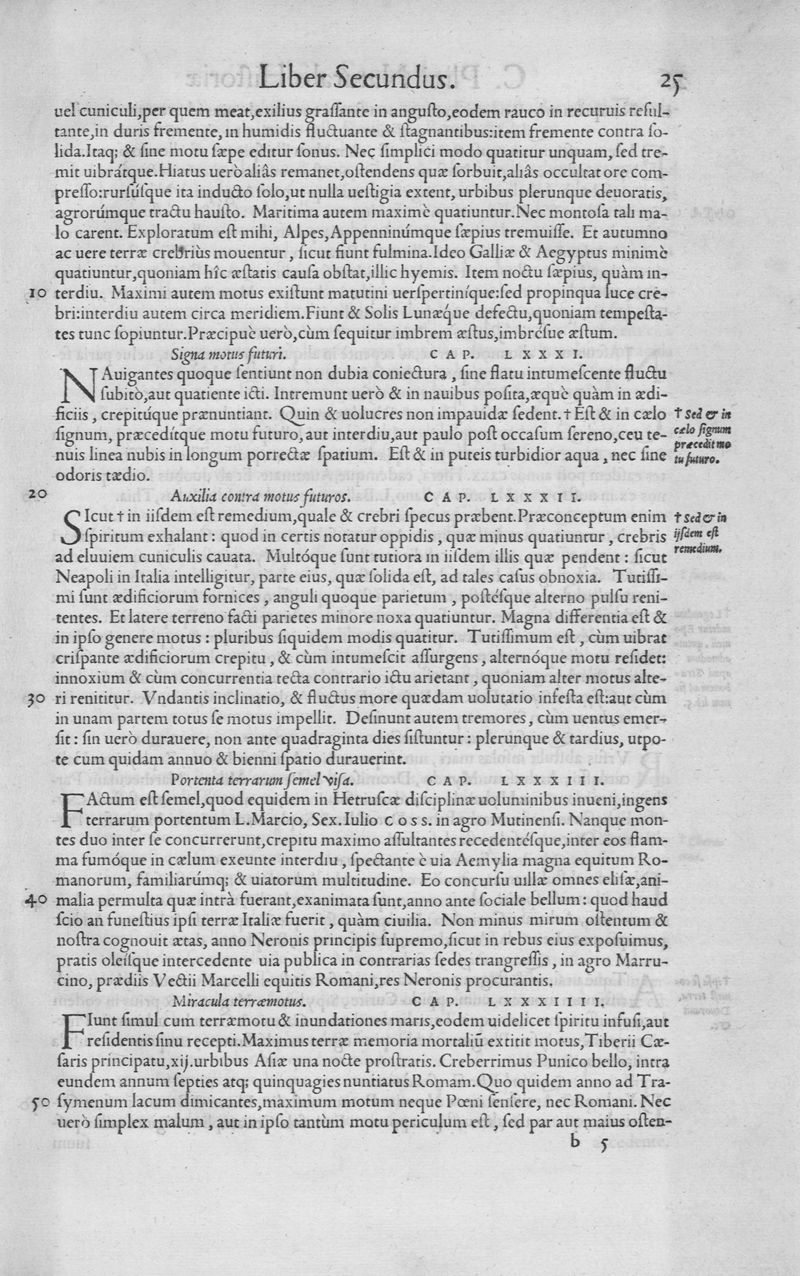 Liber Secundus. 25
uel cuniculi,per quem meat,exilius graſſante in anguſto,eodem rauco in recuruis reſul-
tante,in duris fremente, in humidis fluctuante & ſtagnantibus:item fremente contra ſo-
lida.Itaq; & ſine motu ſæpe editur ſonus. Nec ſimplici modo quatitur unquam, ſed tre-
mit uibrátque.Hiatus uerò aliâs remanet,oſtendens quæ ſorbuit,aliâs occultat ore com-
preſſo:rurſúſque ita inducto ſolo,ut nulla ueſtigia extent, urbibus plerunque deuoratis,
agrorúmque tractu hauſto. Maritima autem maximè quatiuntur.Nec montoſa tali ma-
lo carent. Exploratum eſt mihi, Alpes,Appenninúmque ſæpius tremuiſſe. Et autumno
ac uere terræ crebriùs mouentur, ſicut fiunt fulmina.Ideo Galliæ & Aegyptus minimè
quatiuntur,quoniam hîc æſtatis cauſa obſtat,illic hyemis. Item noctu ſæpius, quàm in-
10 terdiu. Maximi autem motus exiſtunt matutini uerſpertiníque:ſed propinqua luce cre-
bri:interdiu autem circa meridiem.Fiunt & Solis Lunǽque defectu,quoniam tempeſta-
tes tunc ſopiuntur.Præcipuè uerò,cùm ſequitur imbrem æſtus,imbréſue æſtum.
Signa motus futuri. CAP. LXXXI.
NAuigantes quoque ſentiunt non dubia coniectura, ſine flatu intumeſcente fluctu
ſubitò,aut quatiente icti. Intremunt uerò & in nauibus poſita,æquè quàm in ædi-
ficiis, crepitúque prænuntiant. Quin & uolucres non impauidæ ſedent.† Eſt & in cælo
† Sed & in
cælo ſignum
præcedit mo
tu futuro.
ſignum, præcedítque motu futuro,aut interdiu,aut paulo poſt occaſum ſereno,ceu te-
nuis linea nubis in longum porrectæ ſpatium. Eſt & in puteis turbidior aqua, nec ſine
odoris tædio.
20 Auxilia contra motus futuros. CAP. LXXXII.
SIcut † in iiſdem eſt remedium,quale & crebri ſpecus præbent.Præconceptum enim
† Sed & in
ijſdem eſt
remedium.
ſpiritum exhalant: quod in certis notatur oppidis, quæ minus quatiuntur, crebris
ad eluuiem cuniculis cauata. Multóque ſunt tutiora in iiſdem illis quæ pendent: ſicut
Neapoli in Italia intelligitur, parte eius, quæ ſolida eſt, ad tales caſus obnoxia. Tutiſſi-
mi ſunt ædificiorum fornices, anguli quoque parietum, poſtéſque alterno pulſu reni-
tentes. Et latere terreno facti parietes minore noxa quatiuntur. Magna differentia eſt &
in ipſo genere motus: pluribus ſiquidem modis quatitur. Tutiſſimum eſt, cùm uibrat
criſpante ædificiorum crepitu, & cùm intumeſcit aſſurgens, alternóque motu reſidet:
innoxium & cùm concurrentia tecta contrario ictu arietant, quoniam alter motus alte-
30 ri renititur. Vndantis inclinatio, & fluctus more quædam uolutatio infeſta eſt:aut cùm
in unam partem totus ſe motus impellit. Deſinunt autem tremores, cùm uentus emer-
ſit: ſin uerò durauere, non ante quadraginta dies ſiſtuntur: plerunque & tardius, utpo-
te cum quidam annuo & bienni ſpatio durauerint.
Portenta terrarum ſemel viſa. CAP. LXXXIII.
FActum eſt ſemel,quod equidem in Hetruſcæ diſciplinæ uoluminibus inueni,ingens
terrarum portentum L.Marcio, Sex. Iulio COSS. in agro Mutinenſi. Nanque mon-
tes duo inter ſe concurrerunt,crepitu maximo aſſultantes recedentéſque,inter eos flam-
ma fumóque in cælum exeunte interdiu, ſpectante è uia Aemylia magna equitum Ro-
manorum, familiarúmq; & uiatorum multitudine. Eo concurſu uillæ omnes eliſæ,ani-
40 malia permulta quæ intrà fuerant,exanimata ſunt,anno ante ſociale bellum: quod haud
ſcio an funeſtius ipſi terræ Italiæ fuerit, quàm ciuilia. Non minus mirum oſtentum &
noſtra cognouit ætas, anno Neronis principis ſupremo,ſicut in rebus eius expoſuimus,
pratis oleíſque intercedente uia publica in contrarias ſedes trangreſſis, in agro Marru-
cino, prædiis Vectii Marcelli equitis Romani,res Neronis procurantis.
Miracula terræmotus. CAP. LXXXIIII.
FIunt ſimul cum terræmotu & inundationes maris,eodem uidelicet ſpiritu infuſi,aut
reſidentis ſinu recepti.Maximus terræ memoria mortaliū extitit motus,Tiberii Cæ-
ſaris principatu,xij.urbibus Aſiæ una nocte proſtratis. Creberrimus Punico bello, intra
eundem annum ſepties atq; quinquagies nuntiatus Romam.Quo quidem anno ad Tra-
50 ſymenum lacum dimicantes,maximum motum neque Pœni ſenſere, nec Romani. Nec
uerò ſimplex malum, aut in ipſo tantùm motu periculum eſt, ſed par aut maius oſten-
b 5